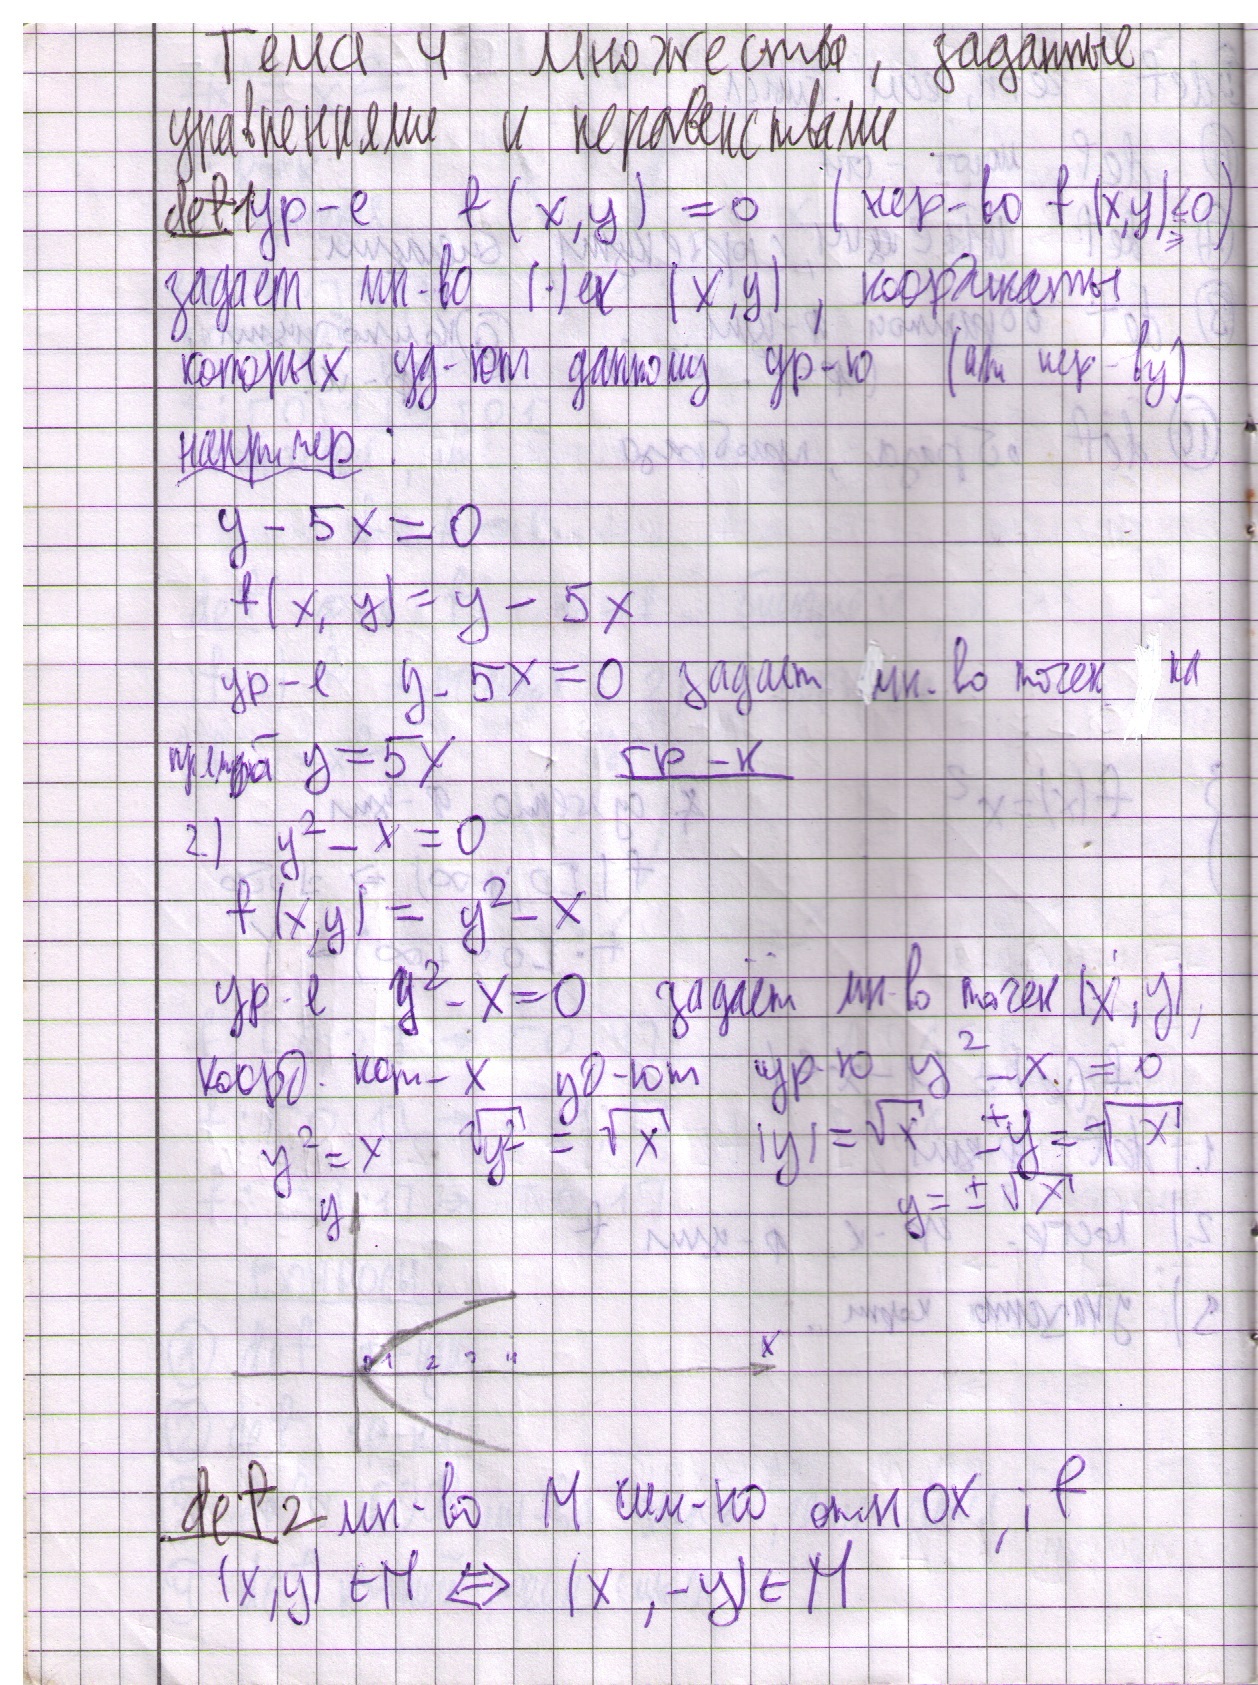 Тема 4 множества, заданные
уравнениями и неравенствами
def 1 ур-е f(x,y)=0 (нер-во f(x,y)≤0)
≥
задает мн-во (·)ек (x,y), координаты
которых уд-ют данному ур-ю (или нер-ву)
например:
y - 5x = 0
f(x,y) = y - 5x
ур-е y - 5x = 0 задает мн-во точек на
прямой y = 5x гр-к
2.) y² - x = 0
f(x,y) = y² - x
ур-е y² - x = 0 задаёт мн-во точек (x,y),
коорд. кот-х уд-ют ур-ю y² - x = 0
y² = x √y² = √x |y| = √x ±y = √x
y = ±√x
y
0 1 2 3 4 x
def 2 мн-во M сим-но отн OX, if
(x,y) ∈ M ⇔ (x,-y) ∈ M